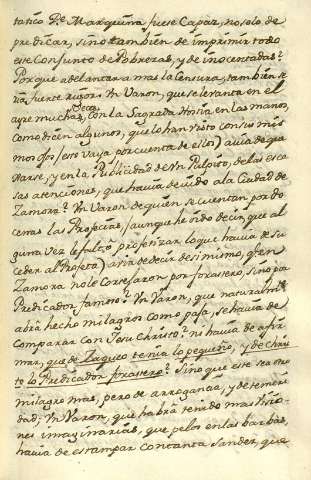 tatico Pe. Marquina fuese Capaz, no solo de
predicar, sino tambien de imprimir todo
este Conjunto de Pobrezas, y de inocentadas?
Porque adelantar a mas la Censura, tambien se
ria fuerte rigor. Vn Varon, que se levanta en el
ayre muchas veces, con la Sagrada Hostia en las manos,
como dicen algunos, que lo han visto con sus mis
mos ojos (esto vaya por cuenta de ellos) avia de que
xarse, y en la Publicidad de Vn Pulpito, de las esca
sas atenciones, que havia devido a la Ciudad de
Zamora? Vn Varon de quien se cuentan por do
cenas las Profecias, (aunque he oido decir, que al
guna vez le faltó profetizar lo que havia de su
ceder al Profeta) avia de decir de si mismo, q en
Zamora no le Cortejaron por forastero, sino por
Predicador famoso? Vn Varon, que naturalmte
abrá hecho milagros como paja, se havia de
Comparar con Jesu Christo? ni havia de afir
mar, que de Zaqueo tenia lo pequeño, y de Chris
to lo Predicador forastero? Sino que este sea otro
milagro mas, pero de arrogancia, y de temeri
dad; Vn Varon, que habrá tenido mas Visio
nes imaginarias, que pelos en las barbas,
havia de estampar con tanta Sandez, que